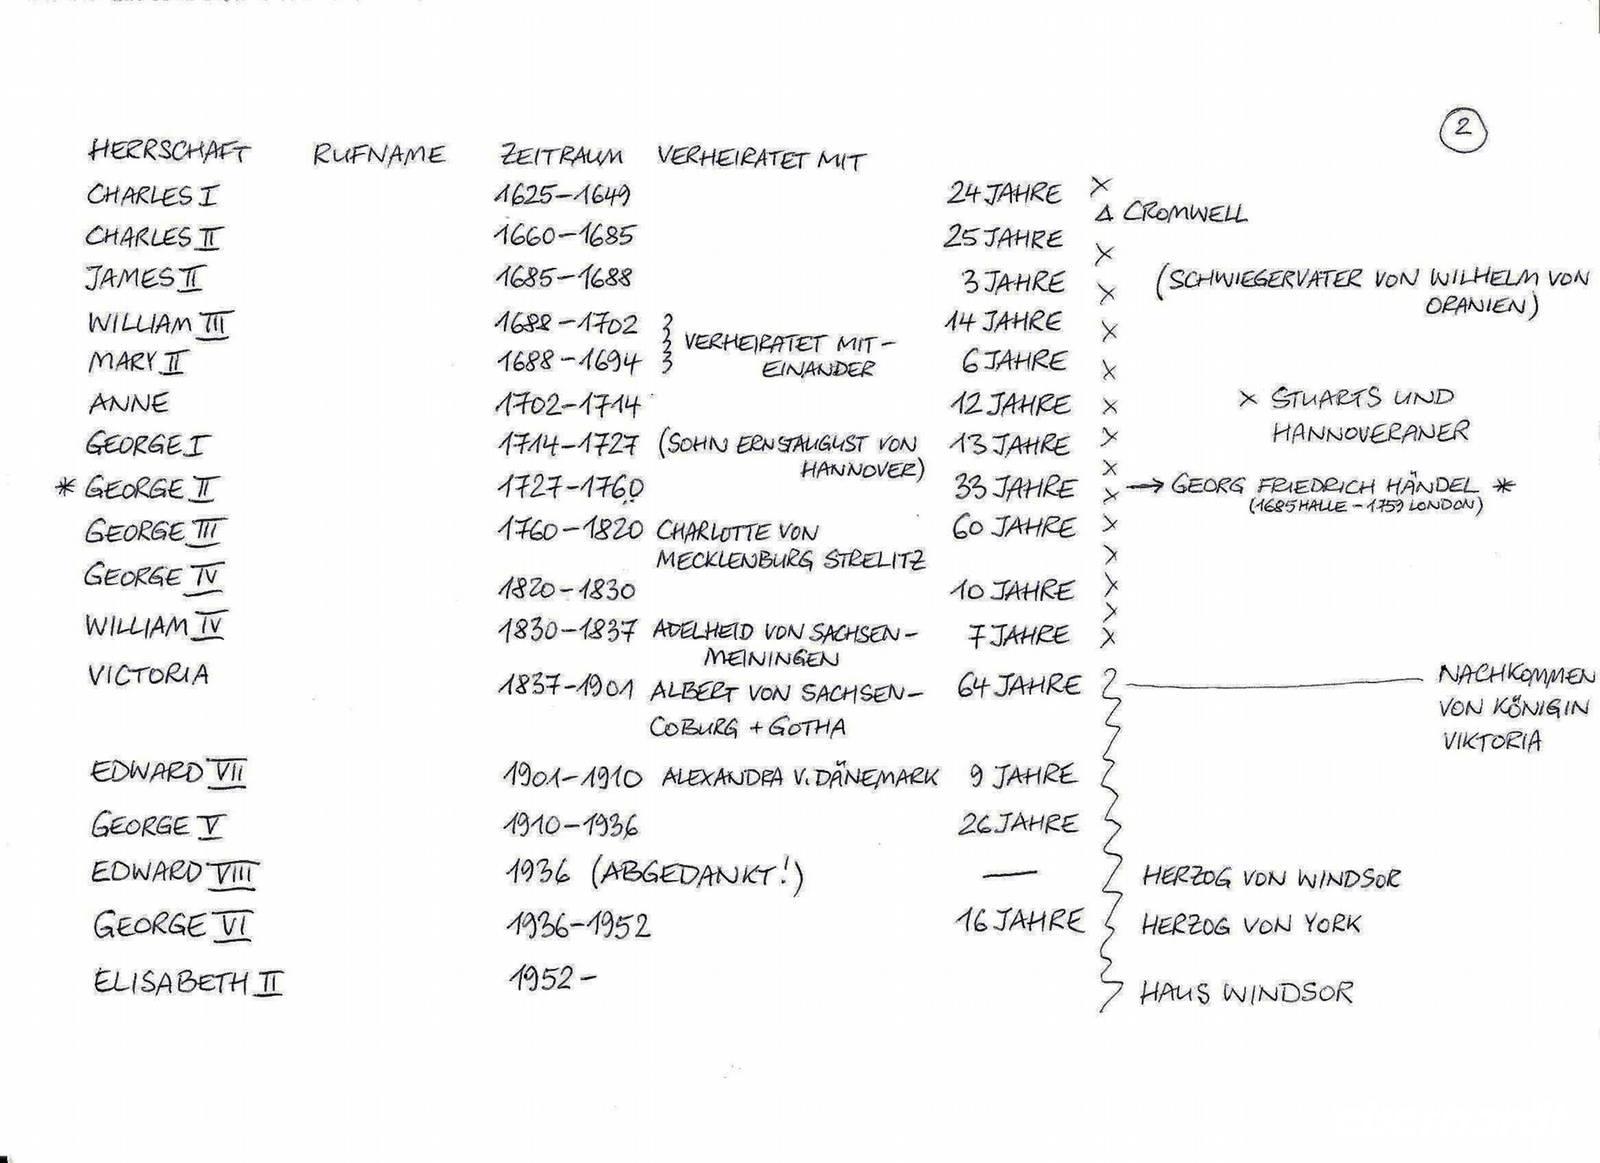 2
HERRSCHAFT RUFNAME ZEITRAUM VERHEIRATET MIT
CHARLES I 1625-1649 24 JAHRE X
Δ CROMWELL
CHARLES II 1660-1685 25 JAHRE X
JAMES II 1685-1688 3 JAHRE X (SCHWIEGERVATER VON WILHELM VON
ORANIEN)
WILLIAM III 1688-1702 14 JAHRE X
VERHEIRATET MIT-
MARY II 1688-1694 EINANDER 6 JAHRE X
ANNE 1702-1714 12 JAHRE X X STUARTS UND
HANNOVERANER
GEORGE I 1714-1727 (SOHN ERNSTAUGUST VON 13 JAHRE X
HANNOVER) X
* GEORGE II 1727-1760 33 JAHRE X → GEORG FRIEDRICH HÄNDEL *
(1685 HALLE - 1759 LONDON)
GEORGE III 1760-1820 CHARLOTTE VON 60 JAHRE X
MECKLENBURG STRELITZ X
GEORGE IV 1820-1830 10 JAHRE X
X
WILLIAM IV 1830-1837 ADELHEID VON SACHSEN- 7 JAHRE X
MEININGEN
VICTORIA 1837-1901 ALBERT VON SACHSEN- 64 JAHRE NACHKOMMEN
COBURG + GOTHA VON KÖNIGIN
VIKTORIA
EDWARD VII 1901-1910 ALEXANDRA V. DÄNEMARK 9 JAHRE
GEORGE V 1910-1936 26 JAHRE
EDWARD VIII 1936 (ABGEDANKT!) — HERZOG VON WINDSOR
GEORGE VI 1936-1952 16 JAHRE HERZOG VON YORK
ELISABETH II 1952- HAUS WINDSOR